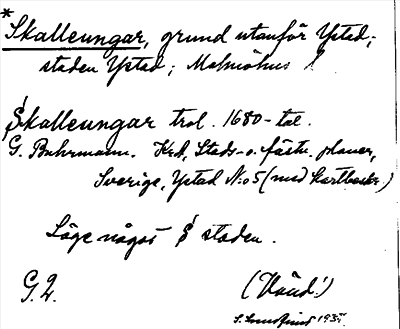 *Skalleungar, grund utanför Ystad;
staden Ystad; Malmöhus l.
Skalleungar trol. 1680-tal
G. Buhrmann. KrA, Stads- o. fästn. planer,
Sverige, Ystad No 5 (med
Läge något S staden.
G. 2.
1935